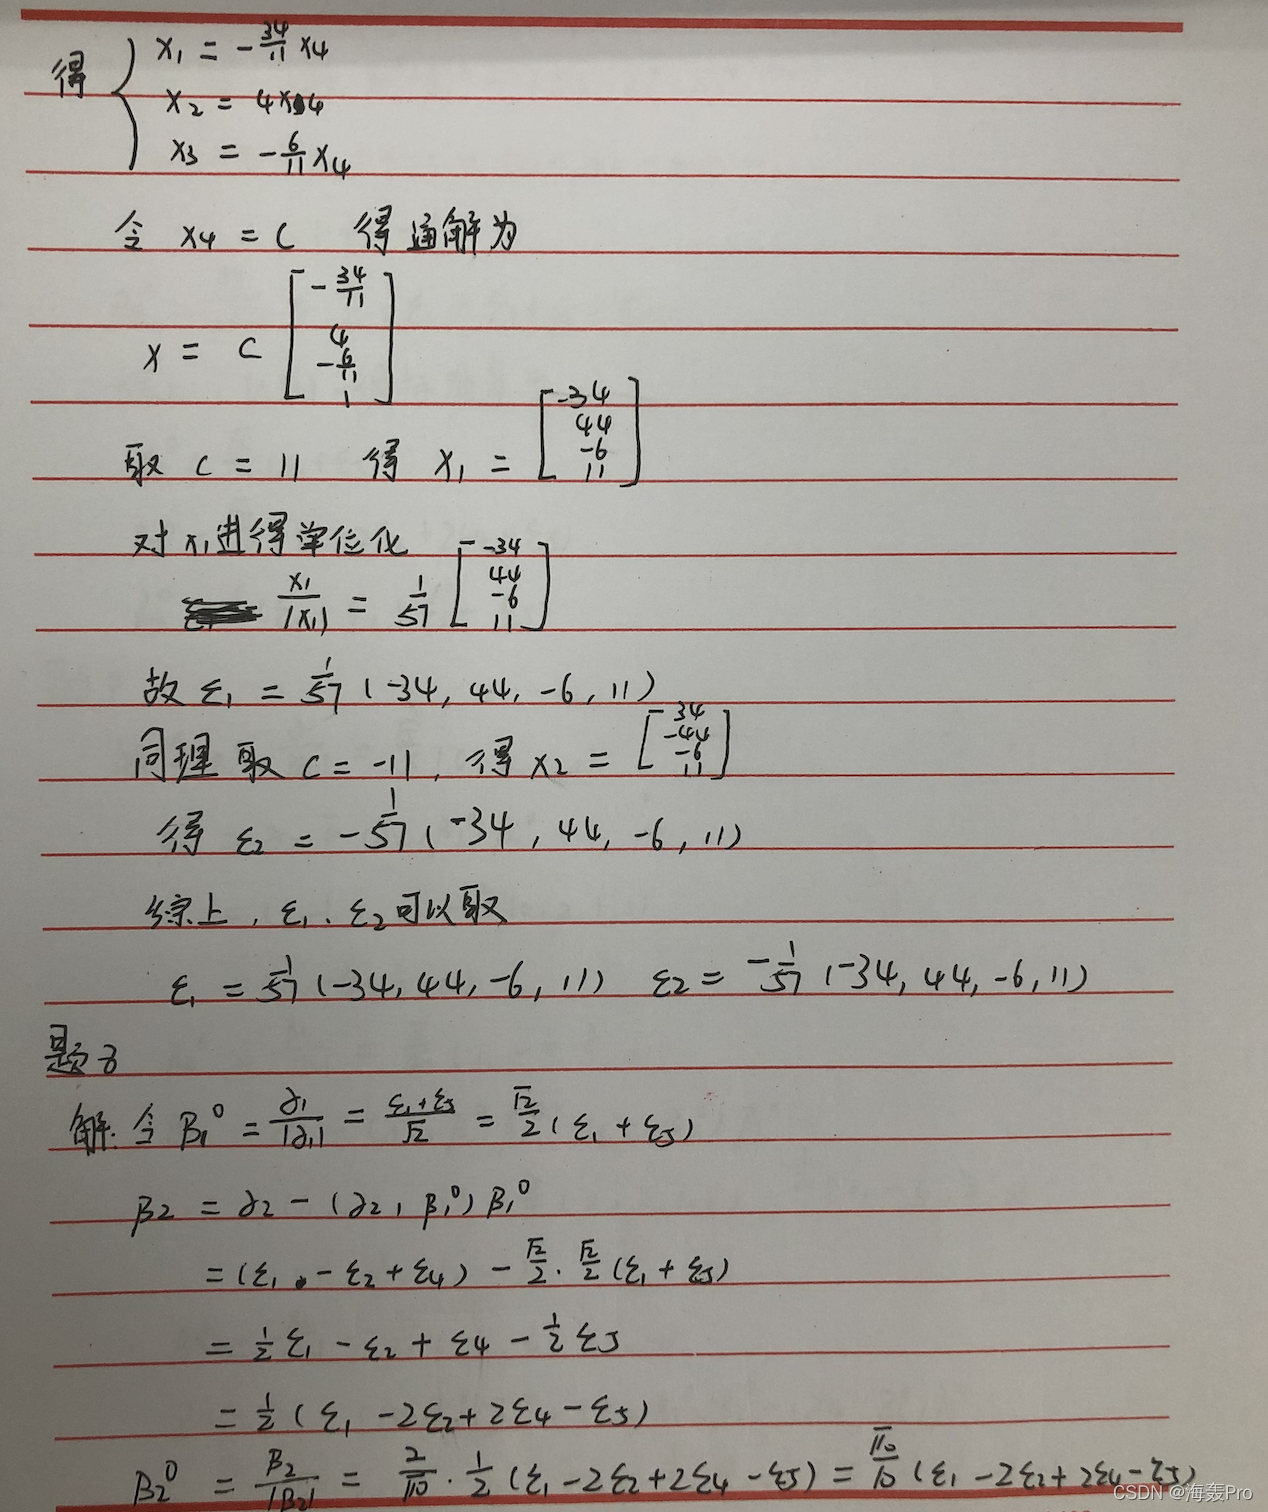 得 { x₁ = -34/11 x₄
x₂ = 4x₄
x₃ = -6/11 x₄
令 x₄ = C 得通解为
x = C [-34/11, 4, -6/11, 1]
取 C = 11 得 x₁ = [-34, 44, -6, 11]
对 x₁ 进得单位化
x₁/|x₁| = 1/57 [-34, 44, -6, 11]
故 ε₁ = 1/57 (-34, 44, -6, 11)
同理 取 C = -11, 得 x₂ = [34, -44, -6, 11]
得 ε₂ = -1/57 (-34, 44, -6, 11)
综上, ε₁、ε₂ 可以取
ε₁ = 1/57 (-34, 44, -6, 11) ε₂ = -1/57 (-34, 44, -6, 11)
题
解: 令 β₁⁰ = α₁/|α₁| = (ε₁+ε₅)/√2 = √2/2 (ε₁ + ε₅)
β₂ = α₂ - (α₂, β₁⁰) β₁⁰
= (ε₁ - ε₂ + ε₄) - √2/2 · √2/2 (ε₁ + ε₅)
= 1/2 ε₁ - ε₂ + ε₄ - 1/2 ε₅
= 1/2 (ε₁ - 2ε₂ + 2ε₄ - ε₅)
β₂⁰ = β₂/|β₂| = 2/√10 · 1/2 (ε₁ - 2ε₂ + 2ε₄ - ε₅) = √10/10 (ε₁ - 2ε₂ + 2ε₄ - ε₅)
CSDN @海轰Pro